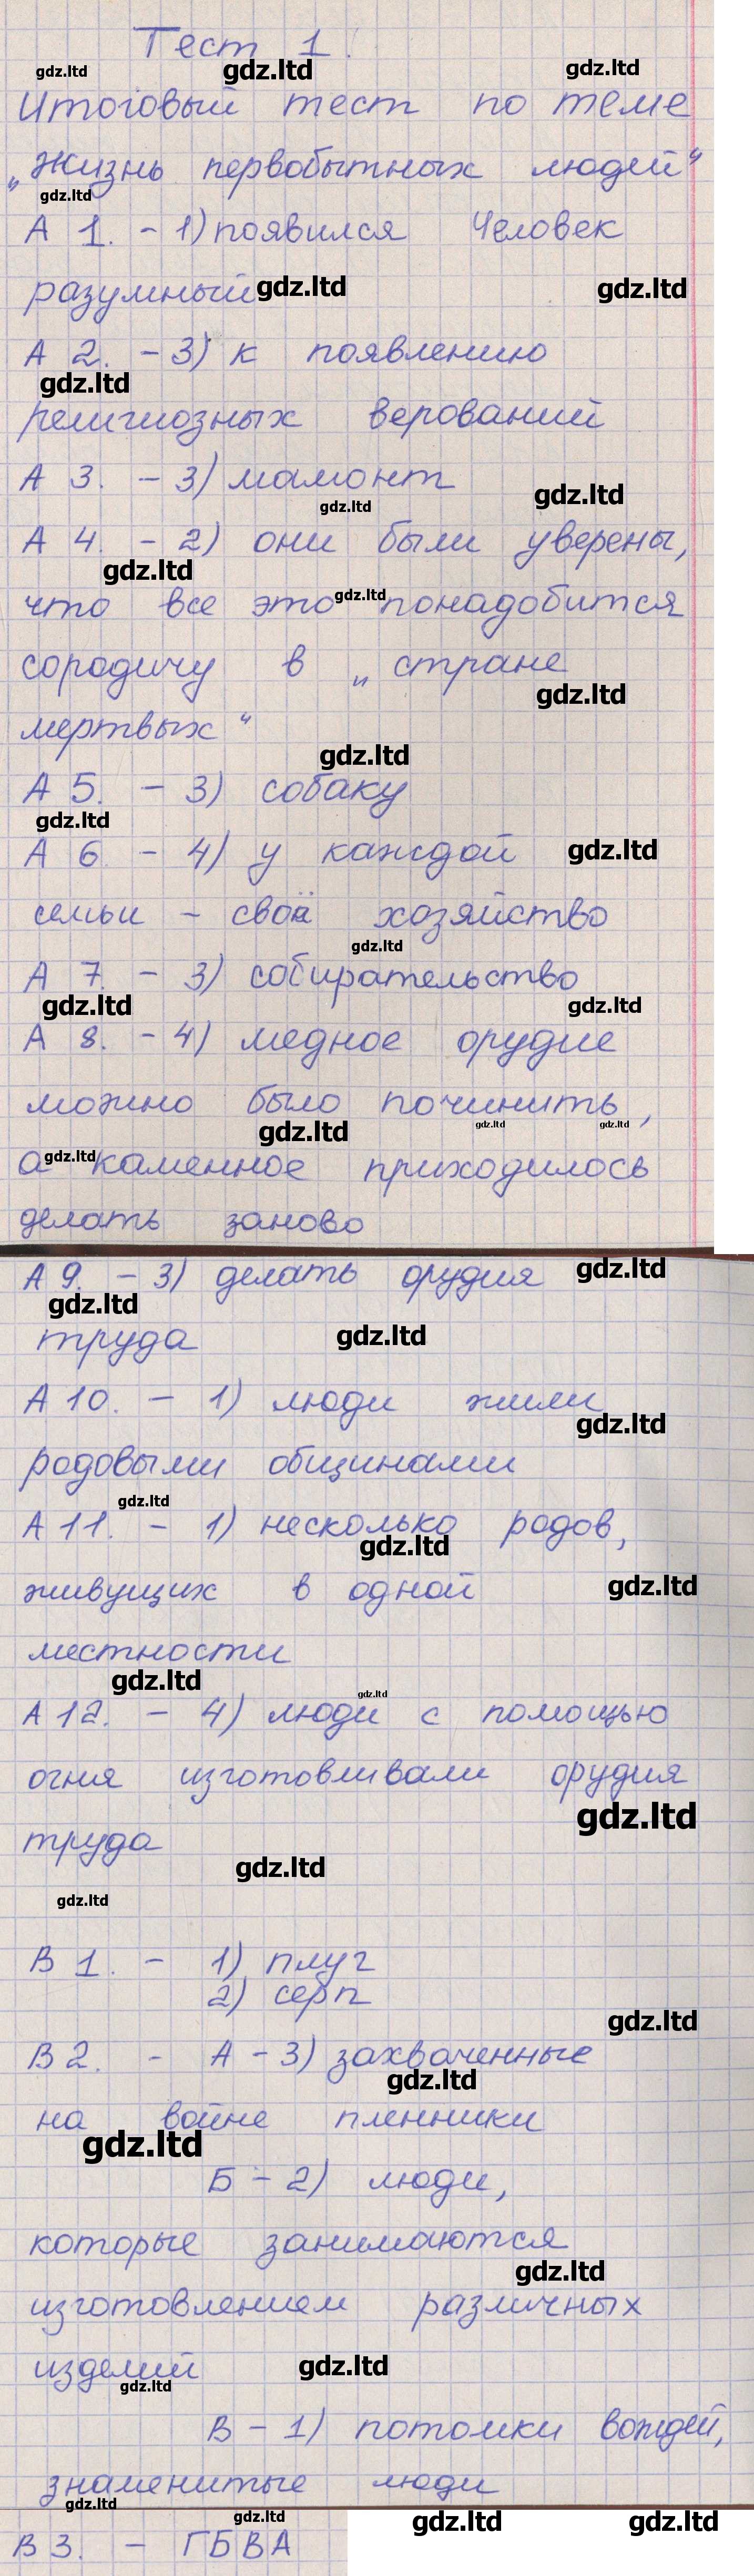 Тест 1.
gdz.ltd gdz.ltd gdz.ltd
Итоговый тест по теме
„Жизнь первобытных людей“
gdz.ltd
А 1. - 1) появился Человек
разумный gdz.ltd gdz.ltd
А 2. - 3) к появлению
gdz.ltd
религиозных верований
А 3. - 3) мамонт
gdz.ltd gdz.ltd
А 4. - 2) они были уверены,
gdz.ltd
что все это gdz.ltd понадобится
сородичу в „стране
gdz.ltd
мертвых“
gdz.ltd
А 5. - 3) собаку
gdz.ltd
А 6 - 4) у каждой gdz.ltd
семьи - своё хозяйство
gdz.ltd
А 7. - 3) собирательство
gdz.ltd gdz.ltd
А 8. - 4) медное орудие
можно было починить,
gdz.ltd gdz.ltd gdz.ltd
а gdz.ltd каменное приходилось
делать заново
А 9. - 3) делать орудия gdz.ltd
gdz.ltd
труда gdz.ltd
А 10. - 1) люди жили
gdz.ltd
родовыми общинами
gdz.ltd
А 11. - 1) несколько родов,
gdz.ltd
живущих в одной gdz.ltd
местности
gdz.ltd gdz.ltd
А 12. - 4) люди с помощью
огня изготовливали орудия
gdz.ltd
труда
gdz.ltd
gdz.ltd
В 1. - 1) плуг
2) серп
gdz.ltd
В 2. - А - 3) захваченные
gdz.ltd
на войне пленники
gdz.ltd
Б - 2) люди,
которые занимаются
gdz.ltd
изготовлением различных
изделий gdz.ltd
gdz.ltd
В - 1) потомки вождей,
знаменитые люди
gdz.ltd
gdz.ltd gdz.ltd gdz.ltd
В 3. - ГБВА